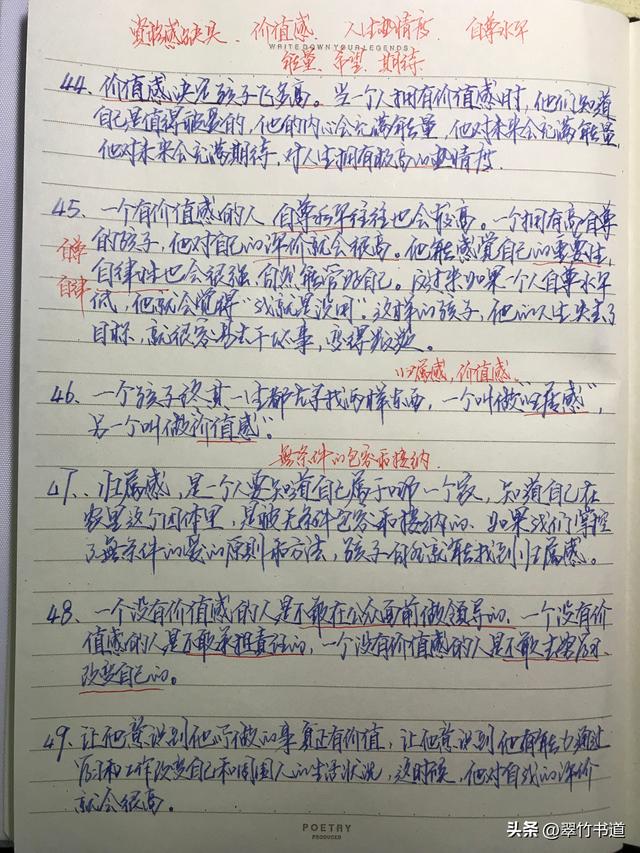 价值感 人生热情度 自尊水平
WRITE DOWN YOUR LEGENDS
能量、希望、期待
44、价值感决定孩子飞多高。当一个人拥有价值感时,他们知道
自己是值得被爱的,他的内心会充满能量,他对未来会充满能量,
他对未来会充满期待,对人生拥有极高的热情度。
45、一个有价值感的人 自尊水平往往也会较高。一个拥有高自尊
自尊 的孩子,他对自己的评价就会很高。他能感觉自己的重要性,
自律 自律性也会很强 自然能管好自己。反过来如果一个人自尊水平
低,他就会觉得“我就是没用”。这样的孩子,他的人生失去了
目标,就很容易去干坏事,变得叛逆。
归属感,价值感。
46、一个孩子终其一生都在寻找两样东西,一个叫做“归属感”,
另一个叫做“价值感”。
无条件的包容和接纳。
47、归属感,是一个人要知道自己属于哪一个家,知道自己在
家里这个团体里,是被无条件包容和接纳的。如果我们掌控
了无条件的爱的原则和方法,孩子自然就能找到归属感。
48、一个没有价值感的人是不敢在公众面前做领导的,一个没有价
值感的人是不敢承担责任的,一个没有价值感的人是不敢去
改变自己的。
49、让他意识到他所做的事真正有价值,让他意识到他有能力通过
学习和工作改变自己和周围人的生活状况,这时候,他对自我的评价
就会很高。
POETRY
PRODUCED
头条 @翠竹书道